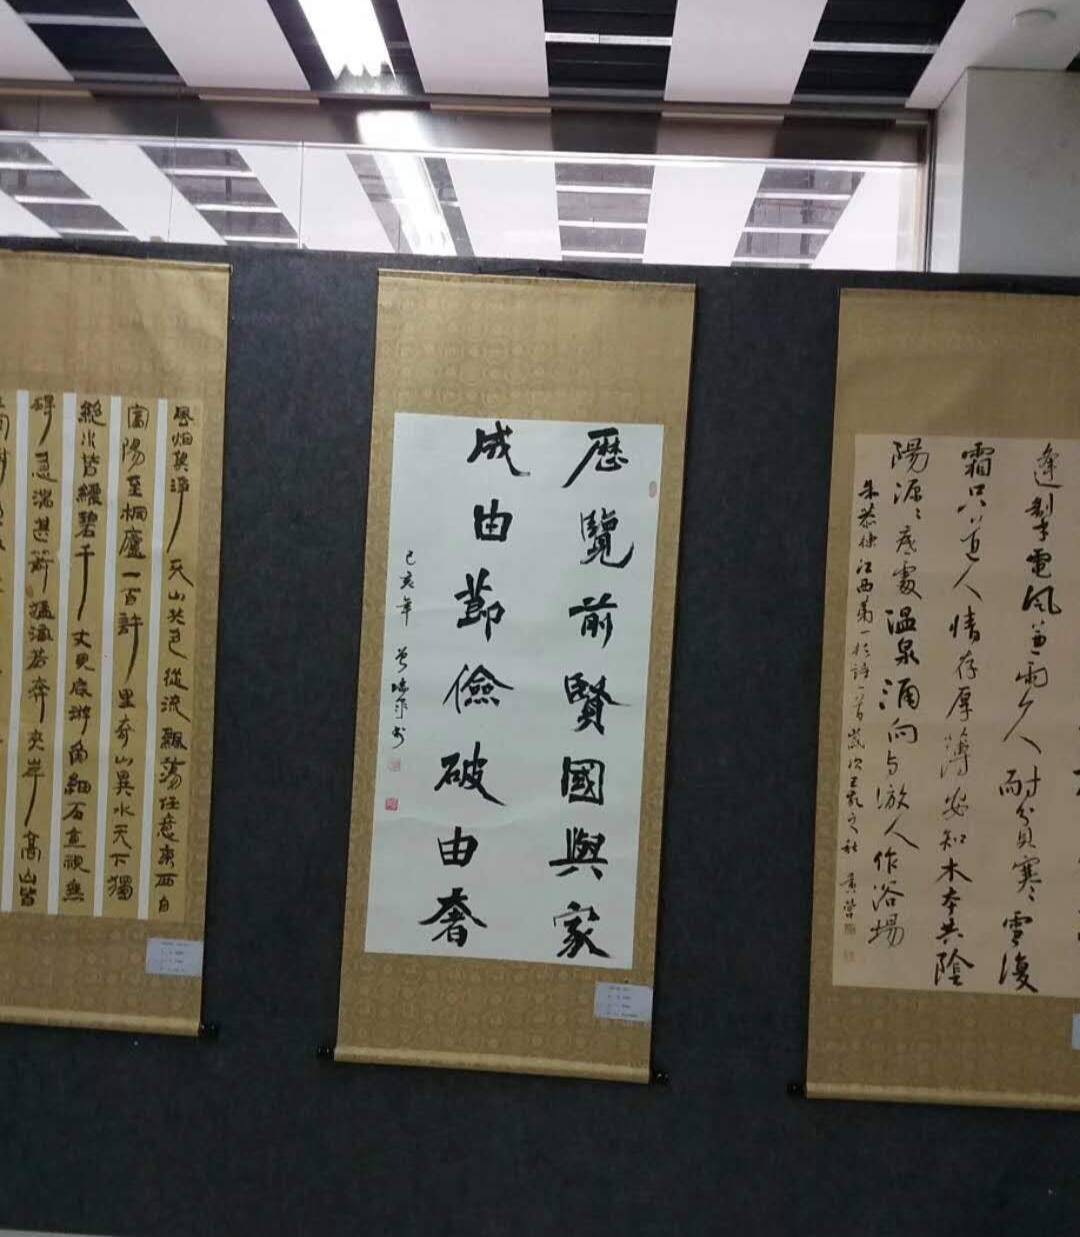 歷覽前賢國與家
成由節儉破由奢
己亥年
風烟俱淨天山共色從流飄蕩任意東西自
富陽至桐廬一百許里奇山異水天下獨
絕水皆縹碧千丈見底游魚細石直視無
礙急湍甚箭猛浪若奔夾岸高山皆
逢掣電風兼雨久人耐貧寒雪復
霜只道人情存厚薄安知木本共陰
陽源〻底處溫泉涌向与漱人作浴場